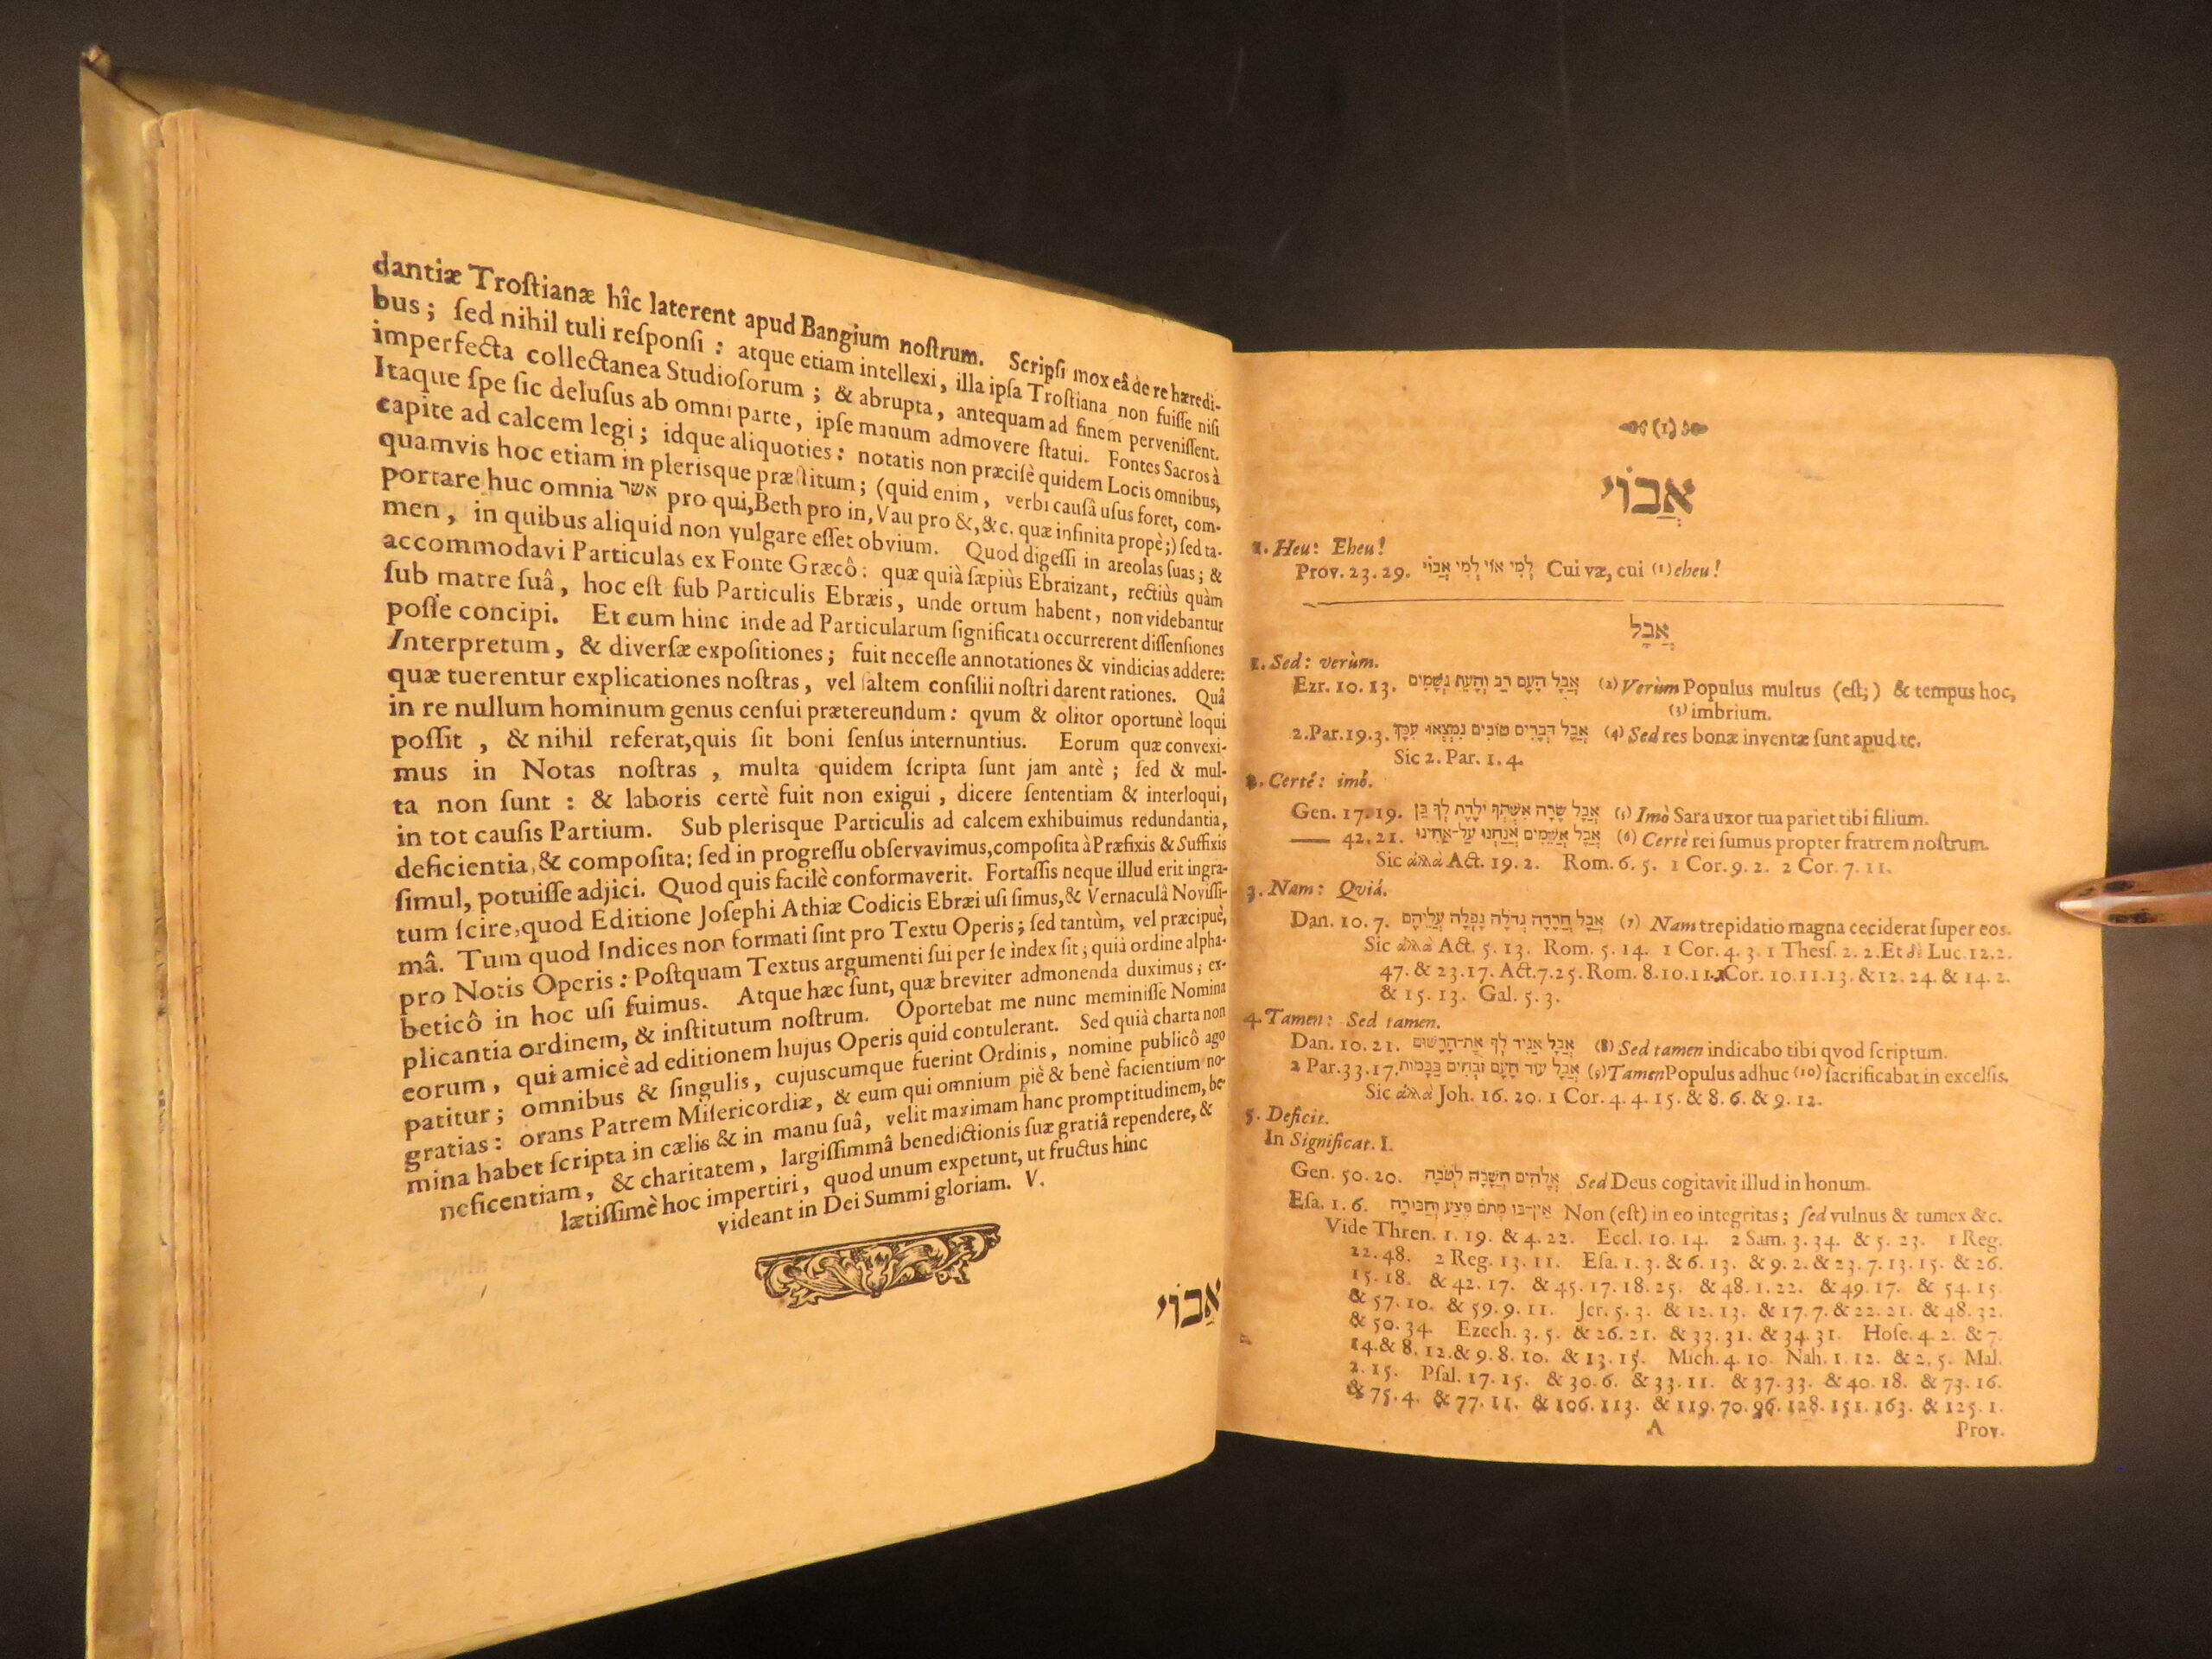 dantiæ Troſtianæ hîc laterent apud Bangium noſtrum. Scripſi mox eâ de re hæredi-
bus; ſed nihil tuli reſponſi: atque etiam intellexi, illa ipſa Troſtiana non fuiſſe niſi
imperfecta collectanea Studioſorum; & abrupta, antequam ad finem perveniſſent.
Itaque ſpe ſic deluſus ab omni parte, ipſe manum admovere ſtatui. Fontes Sacros à
capite ad calcem legi; idque aliquoties: notatis non præciſè quidem Locis omnibus,
quamvis hoc etiam in plerisque præſtitum; (quid enim, verbi cauſâ uſus foret, com-
portare huc omnia אשר pro qui, Beth pro in, Vau pro &, &c. quæ infinita propè;) ſed ta-
men, in quibus aliquid non vulgare eſſet obvium. Quod digeſſi in areolas ſuas; &
accommodavi Particulas ex Fonte Græcô: quæ quià ſæpiùs Ebraizant, rectiùs quàm
ſub matre ſuâ, hoc eſt ſub Particulis Ebræis, unde ortum habent, non videbantur
poſſe concipi. Et cum hinc inde ad Particularum ſignificata occurrerent diſſenſiones
Interpretum, & diverſæ expoſitiones; fuit neceſſe annotationes & vindicias addere:
quæ tuerentur explicationes noſtras, vel ſaltem conſilii noſtri darent rationes. Quâ
in re nullum hominum genus cenſui prætereundum: qvum & olitor oportunè loqui
poſſit, & nihil referat, quis ſit boni ſenſus internuntius. Eorum quæ convexi-
mus in Notas noſtras, multa quidem ſcripta ſunt jam antè; ſed & mul-
ta non ſunt: & laboris certè fuit non exigui, dicere ſententiam & interloqui,
in tot cauſis Partium. Sub plerisque Particulis ad calcem exhibuimus redundantia,
deficientia, & compoſita; ſed in progreſſu obſervavimus, compoſita à Præfixis & Suffixis
ſimul, potuiſſe adjici. Quod quis facilè conformaverit. Fortaſſis neque illud erit ingra-
tum ſcire, quod Editione Joſephi Athiæ Codicis Ebræi uſi ſimus, & Vernaculâ Noviſſi-
mâ. Tum quod Indices non formati ſint pro Textu Operis; ſed tantùm, vel præcipuè,
pro Notis Operis: Poſtquam Textus argumenti ſui per ſe index ſit; quià ordine alpha-
beticô in hoc uſi fuimus. Atque hæc ſunt, quæ breviter admonenda duximus; ex-
plicantia ordinem, & inſtitutum noſtrum. Oportebat me nunc meminiſſe Nomina
eorum, qui amicè ad editionem hujus Operis quid contulerant. Sed quià charta non
patitur; omnibus & ſingulis, cujuscumque fuerint Ordinis, nomine publicô ago
gratias: orans Patrem Miſericordiæ, & eum qui omnium piè & benè facientium no-
mina habet ſcripta in cælis & in manu ſuâ, velit maximam hanc promptitudinem, be-
neficentiam, & charitatem, largiſſimmâ benedictionis ſuæ gratiâ rependere, &
lætiſſimè hoc impertiri, quod unum expetunt, ut fructus hinc
videant in Dei Summi gloriam. V.
אֲבוֹי
(1)
אֲבוֹי
1. Heu: Eheu!
Prov. 23. 29. לְמִי אוֹי לְמִי אֲבוֹי Cui væ, cui (1) eheu!
אֲבָל
1. Sed: verùm.
Ezr. 10. 13. אֲבָל הָעָם רַב וְהָעֵת גְּשָׁמִים (2) Verùm Populus multus (eſt;) & tempus hoc,
(3) imbrium.
2. Par. 19. 3. אֲבָל דְּבָרִים טוֹבִים נִמְצְאוּ עִמָּךְ (4) Sed res bonæ inventæ ſunt apud te.
Sic 2. Par. 1. 4.
2. Certé: imò.
Gen. 17. 19. אֲבָל שָׂרָה אִשְׁתְּךָ יֹלֶדֶת לְךָ בֵּן (5) Imò Sara uxor tua pariet tibi filium.
— 42. 21. אֲבָל אֲשֵׁמִים אֲנַחְנוּ עַל־אָחִינוּ (6) Certè rei ſumus propter fratrem noſtrum.
Sic ἀλλὰ Act. 19. 2. Rom. 6. 5. 1 Cor. 9. 2. 2 Cor. 7. 11.
3. Nam: Qviá.
Dan. 10. 7. אֲבָל חֲרָדָה גְדֹלָה נָפְלָה עֲלֵיהֶם (7) Nam trepidatio magna ceciderat ſuper eos.
Sic ἀλλὰ Act. 5. 13. Rom. 5. 14. 1 Cor. 4. 3. 1 Theſſ. 2. 2. Et δὲ Luc. 12. 2.
47. & 23. 17. Act. 7. 25. Rom. 8. 10. 11. 1 Cor. 10. 11. 13. & 12. 24. & 14. 2.
& 15. 13. Gal. 5. 3.
4. Tamen: Sed tamen.
Dan. 10. 21. אֲבָל אַגִּיד לְךָ אֶת־הָרָשׁוּם (8) Sed tamen indicabo tibi qvod ſcriptum.
2 Par. 33. 17. אֲבָל עוֹד הָעָם זֹבְחִים בַּבָּמוֹת (9) Tamen Populus adhuc (10) ſacrificabat in excelſis.
Sic ἀλλὰ Joh. 16. 20. 1 Cor. 4. 4. 15. & 8. 6. & 9. 12.
5. Deficit.
In Significat. I.
Gen. 50. 20. אֱלֹהִים חֲשָׁבָהּ לְטֹבָה Sed Deus cogitavit illud in bonum.
Eſa. 1. 6. אֵין־בּוֹ מְתֹם פֶּצַע וְחַבּוּרָה Non (eſt) in eo integritas; ſed vulnus & tumex &c.
Vide Thren. 1. 19. & 4. 22. Eccl. 10. 14. 2 Sam. 3. 34. & 5. 23. 1 Reg.
22. 48. 2 Reg. 13. 11. Eſa. 1. 3. & 6. 13. & 9. 2. & 23. 7. 13. 15. & 26.
15. 18. & 42. 17. & 45. 17. 18. 25. & 48. 1. 22. & 49. 17. & 54. 15.
& 57. 10. & 59. 9. 11. Jer. 5. 3. & 12. 13. & 17. 7. & 22. 21. & 48. 32.
& 50. 34. Ezech. 3. 5. & 26. 21. & 33. 31. & 34. 31. Hoſe. 4. 2. & 7.
14. & 8. 12. & 9. 8. 10. & 13. 15. Mich. 4. 10. Nah. 1. 12. & 2. 5. Mal.
2. 15. Pſal. 17. 15. & 30. 6. & 33. 11. & 37. 33. & 40. 18. & 73. 16.
& 75. 4. & 77. 11. & 106. 113. & 119. 70. 96. 128. 151. 163. & 125. 1.
A
Prov.